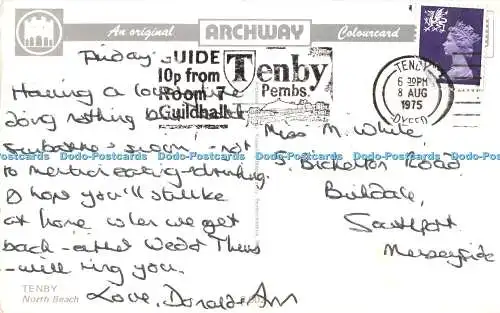 An original ARCHWAY Colourcard
Friday
GUIDE
10p from
Room 7
Guildhall
Tenby
Pembs.
TENBY
6 30PM
8 AUG
1975
DYFED
Having a lovely time
doing nothing but
sunbathe & swim - not
to mention eating & drinking.
I hope you'll still be
at home when we get
back - either Wed or Thurs
- will ring you.
Love, Donald & Ann
Miss M. White
5. Bickerton Road
Birkdale,
Southport
Merseyside
Dodo-Postcards Dodo-Postcards Dodo-Postcards Dodo-Postcards Dodo-Postcards Dodo-Postcards
TENBY
North Beach